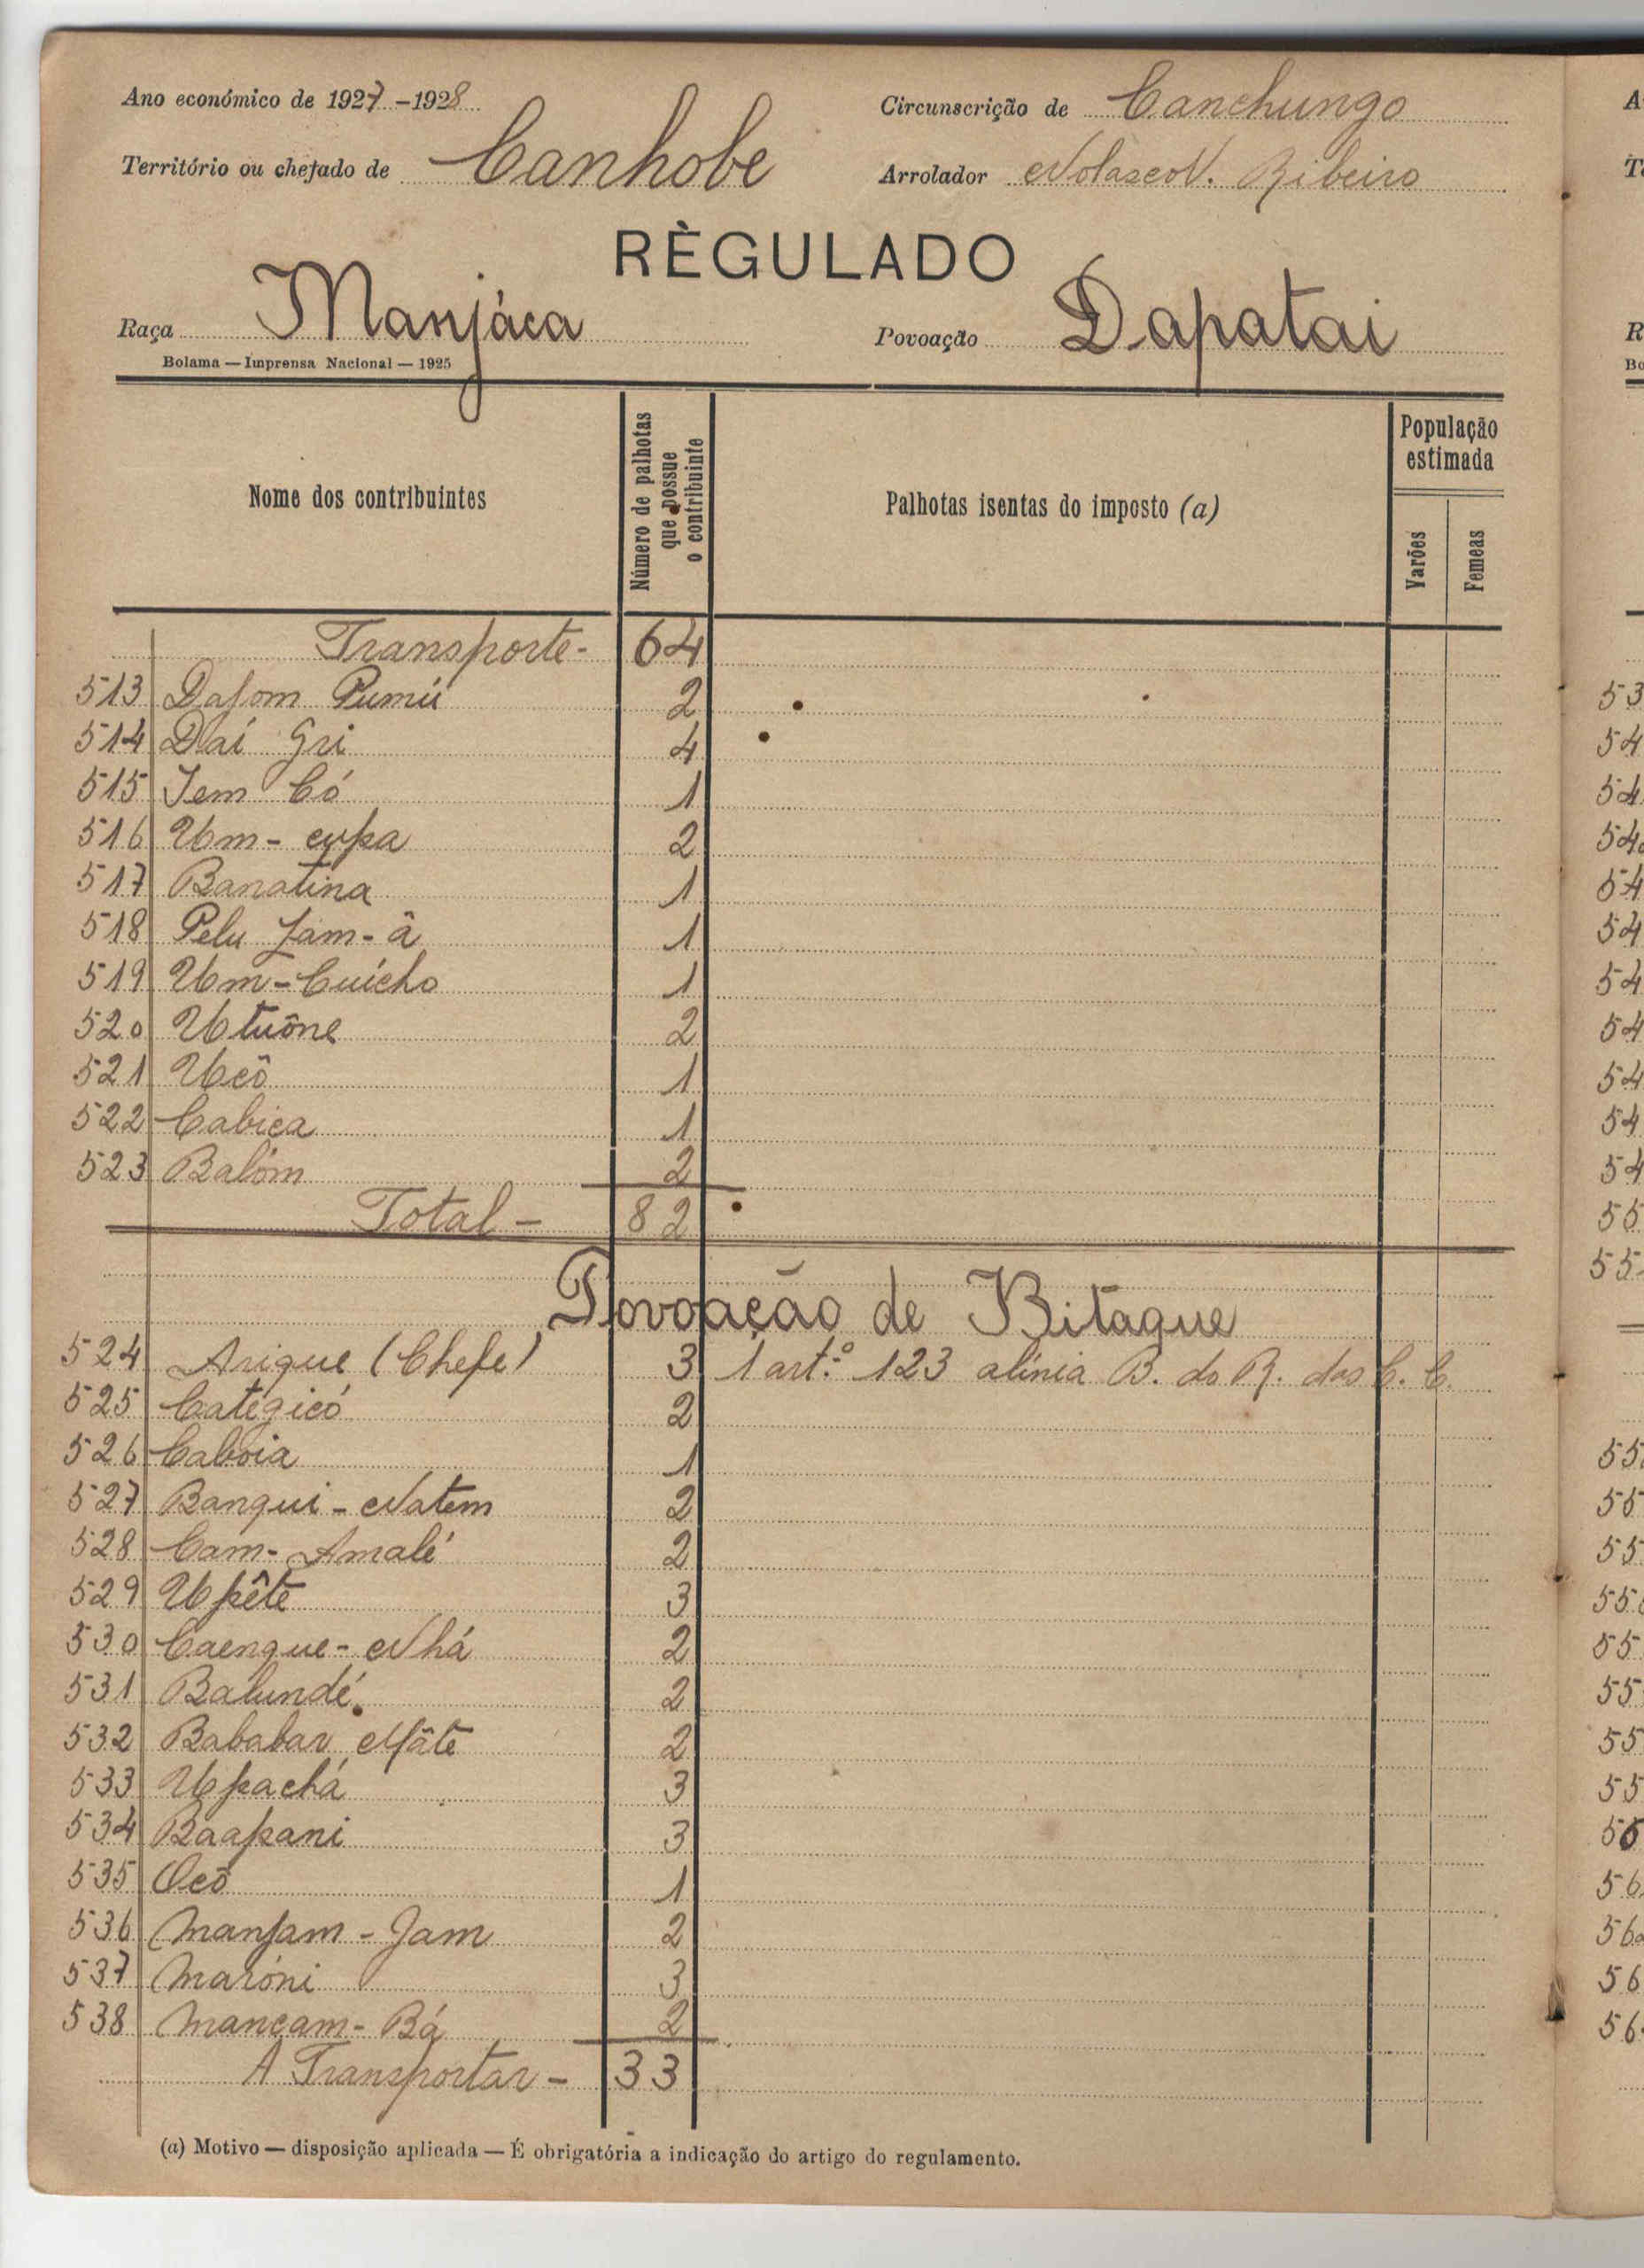 Ano económico de 1927-1928
Circunscrição de Canchungo
Território ou chefado de Canhobe
Arrolador Nolasco N. Ribeiro
RÈGULADO
Raça Manjáca
Povoação Dapatai
Bolama — Imprensa Nacional — 1925
Nome dos contribuintes
Número de palhotas que possue o contribuinte
Palhotas isentas do imposto (a)
População estimada
Varões
Femeas
Transporte - 64
513 Dafom Pumú 2
514 Daí Gri 4
515 Jem Có 1
516 Um - cupa 2
517 Banatina 1
518 Pelu Jam - â 1
519 Um - Cuícho 1
520 Utuône 2
521 Ucô 1
522 Cabica 1
523 Balóm 2
Total - 82
Povoação de Bitague
524 Arigue (Chefe) 3 1 art.º 123 alínia B. do R. das C. C.
525 Categicó 2
526 Caboia 1
527 Bangui - Natem 2
528 Cam - Amalé 2
529 Upête 3
530 Caengue - Nhá 2
531 Balundé 2
532 Bababar Mâte 2
533 Upachá 3
534 Baapani 3
535 Ocô 1
536 Manjam - Jam 2
537 Maróni 3
538 Mancam - Bá 2
A Transportar - 33
(a) Motivo — disposição aplicada — É obrigatória a indicação do artigo do regulamento.